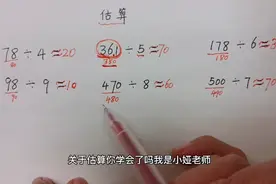 估算
78 ÷ 4 ≈ 20
80
361 ÷ 5 ≈ 70
350
178 ÷ 6 ≈ 3
180
98 ÷ 9 ≈ 10
90
470 ÷ 8 ≈ 60
480
500 ÷ 7 ≈ 70
490
关于估算你学会了吗我是小娅老师